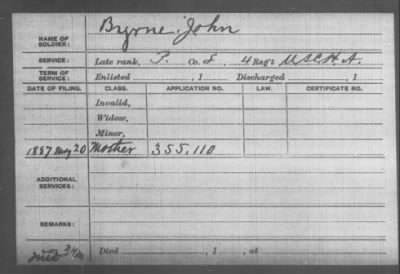 Byrne, John
NAME OF SOLDIER:
SERVICE: Late rank, P. Co. I, 4 Reg't U.S.C.H.A.
TERM OF SERVICE: Enlisted , 1 Discharged , 1
DATE OF FILING. CLASS. APPLICATION NO. LAW. CERTIFICATE NO.
Invalid,
Widow,
Minor,
1887 May 20 Mother 355.110
ADDITIONAL SERVICES:
REMARKS:
Died , 1 , at